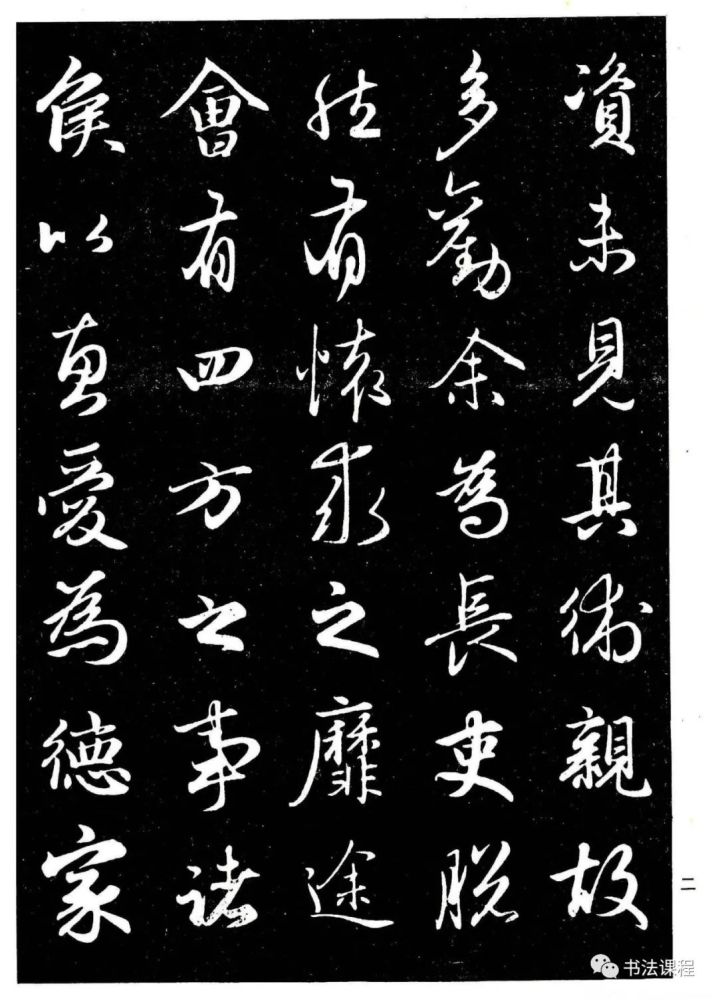 資未見其術親故
多勸余為長吏脫
然有懷求之靡途
會有四方之事諸
侯以惠愛為德家
二
书法课程